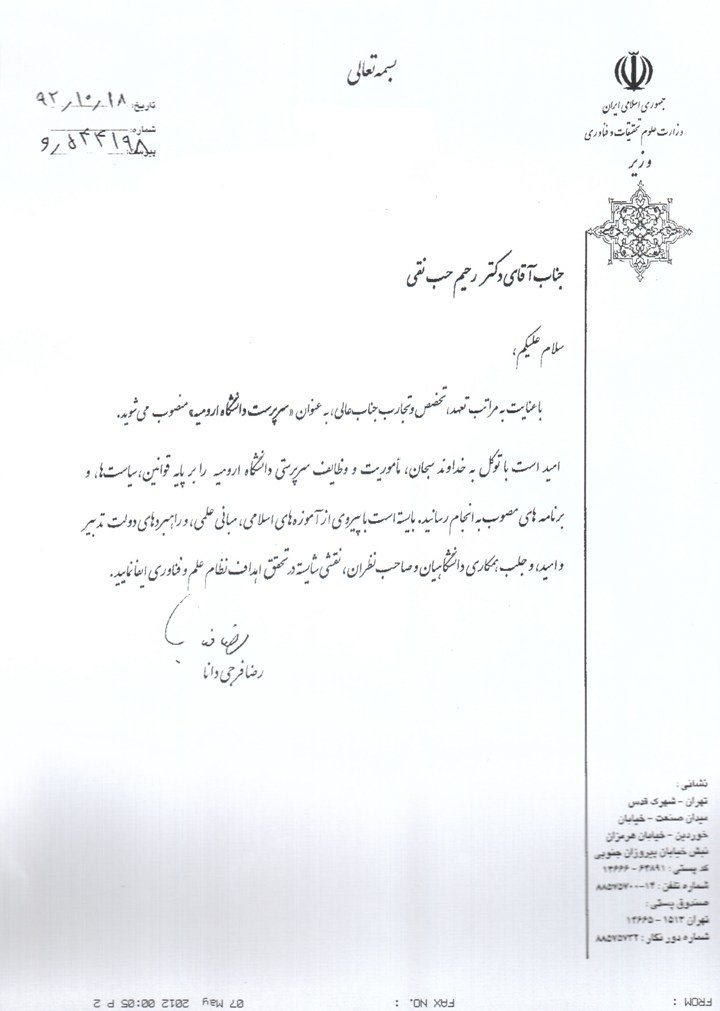 بسمه تعالی
جمهوری اسلامی ایران
وزارت علوم تحقیقات و فناوری
وزیر
تاریخ: ۹۲٫۱۰٫۱۸
شماره: ۵۴۴۱۹۸٫و
پیوست:
جناب آقای دکتر رحیم حب نقی
سلام علیکم؛
با عنایت به مراتب تعهد، تخصص و تجارب جناب‌عالی، به عنوان «سرپرست دانشگاه ارومیه» منصوب می‌شوید.
امید است با توکل به خداوند سبحان، مأموریت و وظایف سرپرستی دانشگاه ارومیه را بر پایه قوانین، سیاست‌ها، و
برنامه های مصوب به انجام رسانید. بایسته است با پیروی از آموزه‌های اسلامی، مبانی علمی، و راهبردهای دولت تدبیر
و امید، و جلب همکاری دانشگاهیان و صاحب نظران، نقشی شایسته در تحقق اهداف نظام علم و فناوری ایفا نمایید.
رضا فرجی دانا
نشانی:
تهران - شهرک قدس
میدان صنعت - خیابان
خوردین - خیابان هرمزان
نبش خیابان پیروزان جنوبی
کد پستی: ۶۴۸۹۱ - ۱۴۶۶۶
شماره تلفن: ۱۴-۸۸۵۷۵۷۰۰
صندوق پستی:
تهران ۱۵۱۳ - ۱۴۶۶۵
شماره دور نگار: ۸۸۵۷۵۷۳۲
FROM :
FAX NO. :
07 May 2012 00:05 P 2